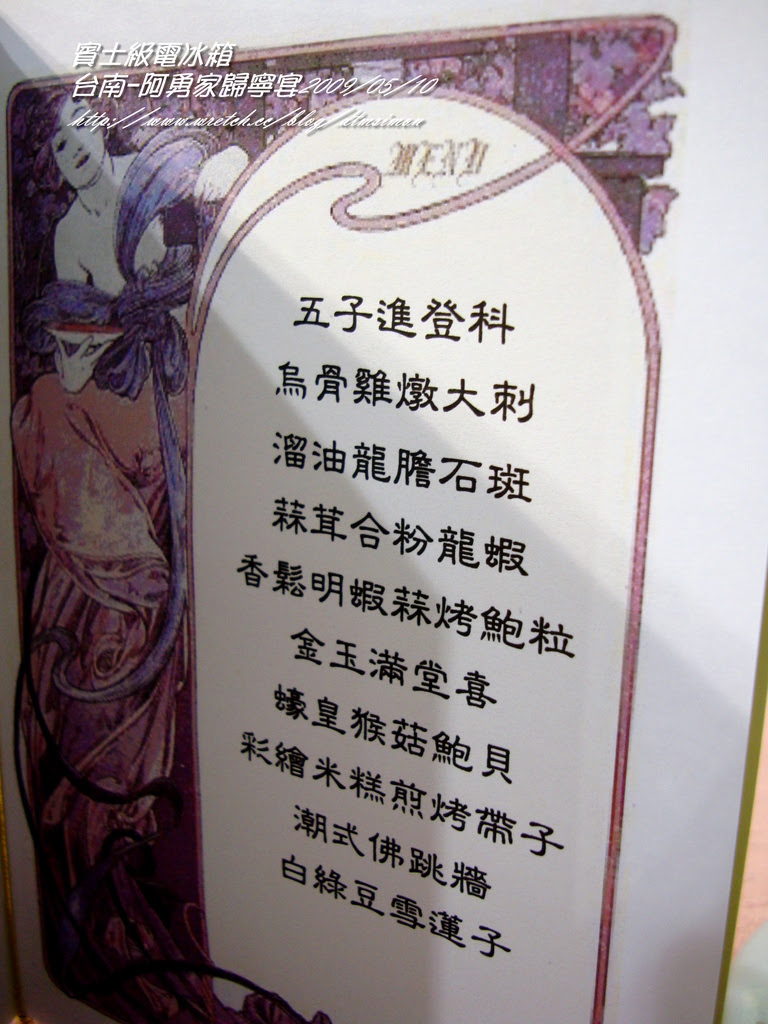 賓士級電冰箱
台南-阿勇家歸寧宴2009/05/10
MENU
五子進登科
烏骨雞燉大刺
溜油龍膽石斑
蒜茸合粉龍蝦
香鬆明蝦蒜烤鮑粒
金玉滿堂喜
蠔皇猴菇鮑貝
彩繪米糕煎烤帶子
潮式佛跳牆
白綠豆雪蓮子